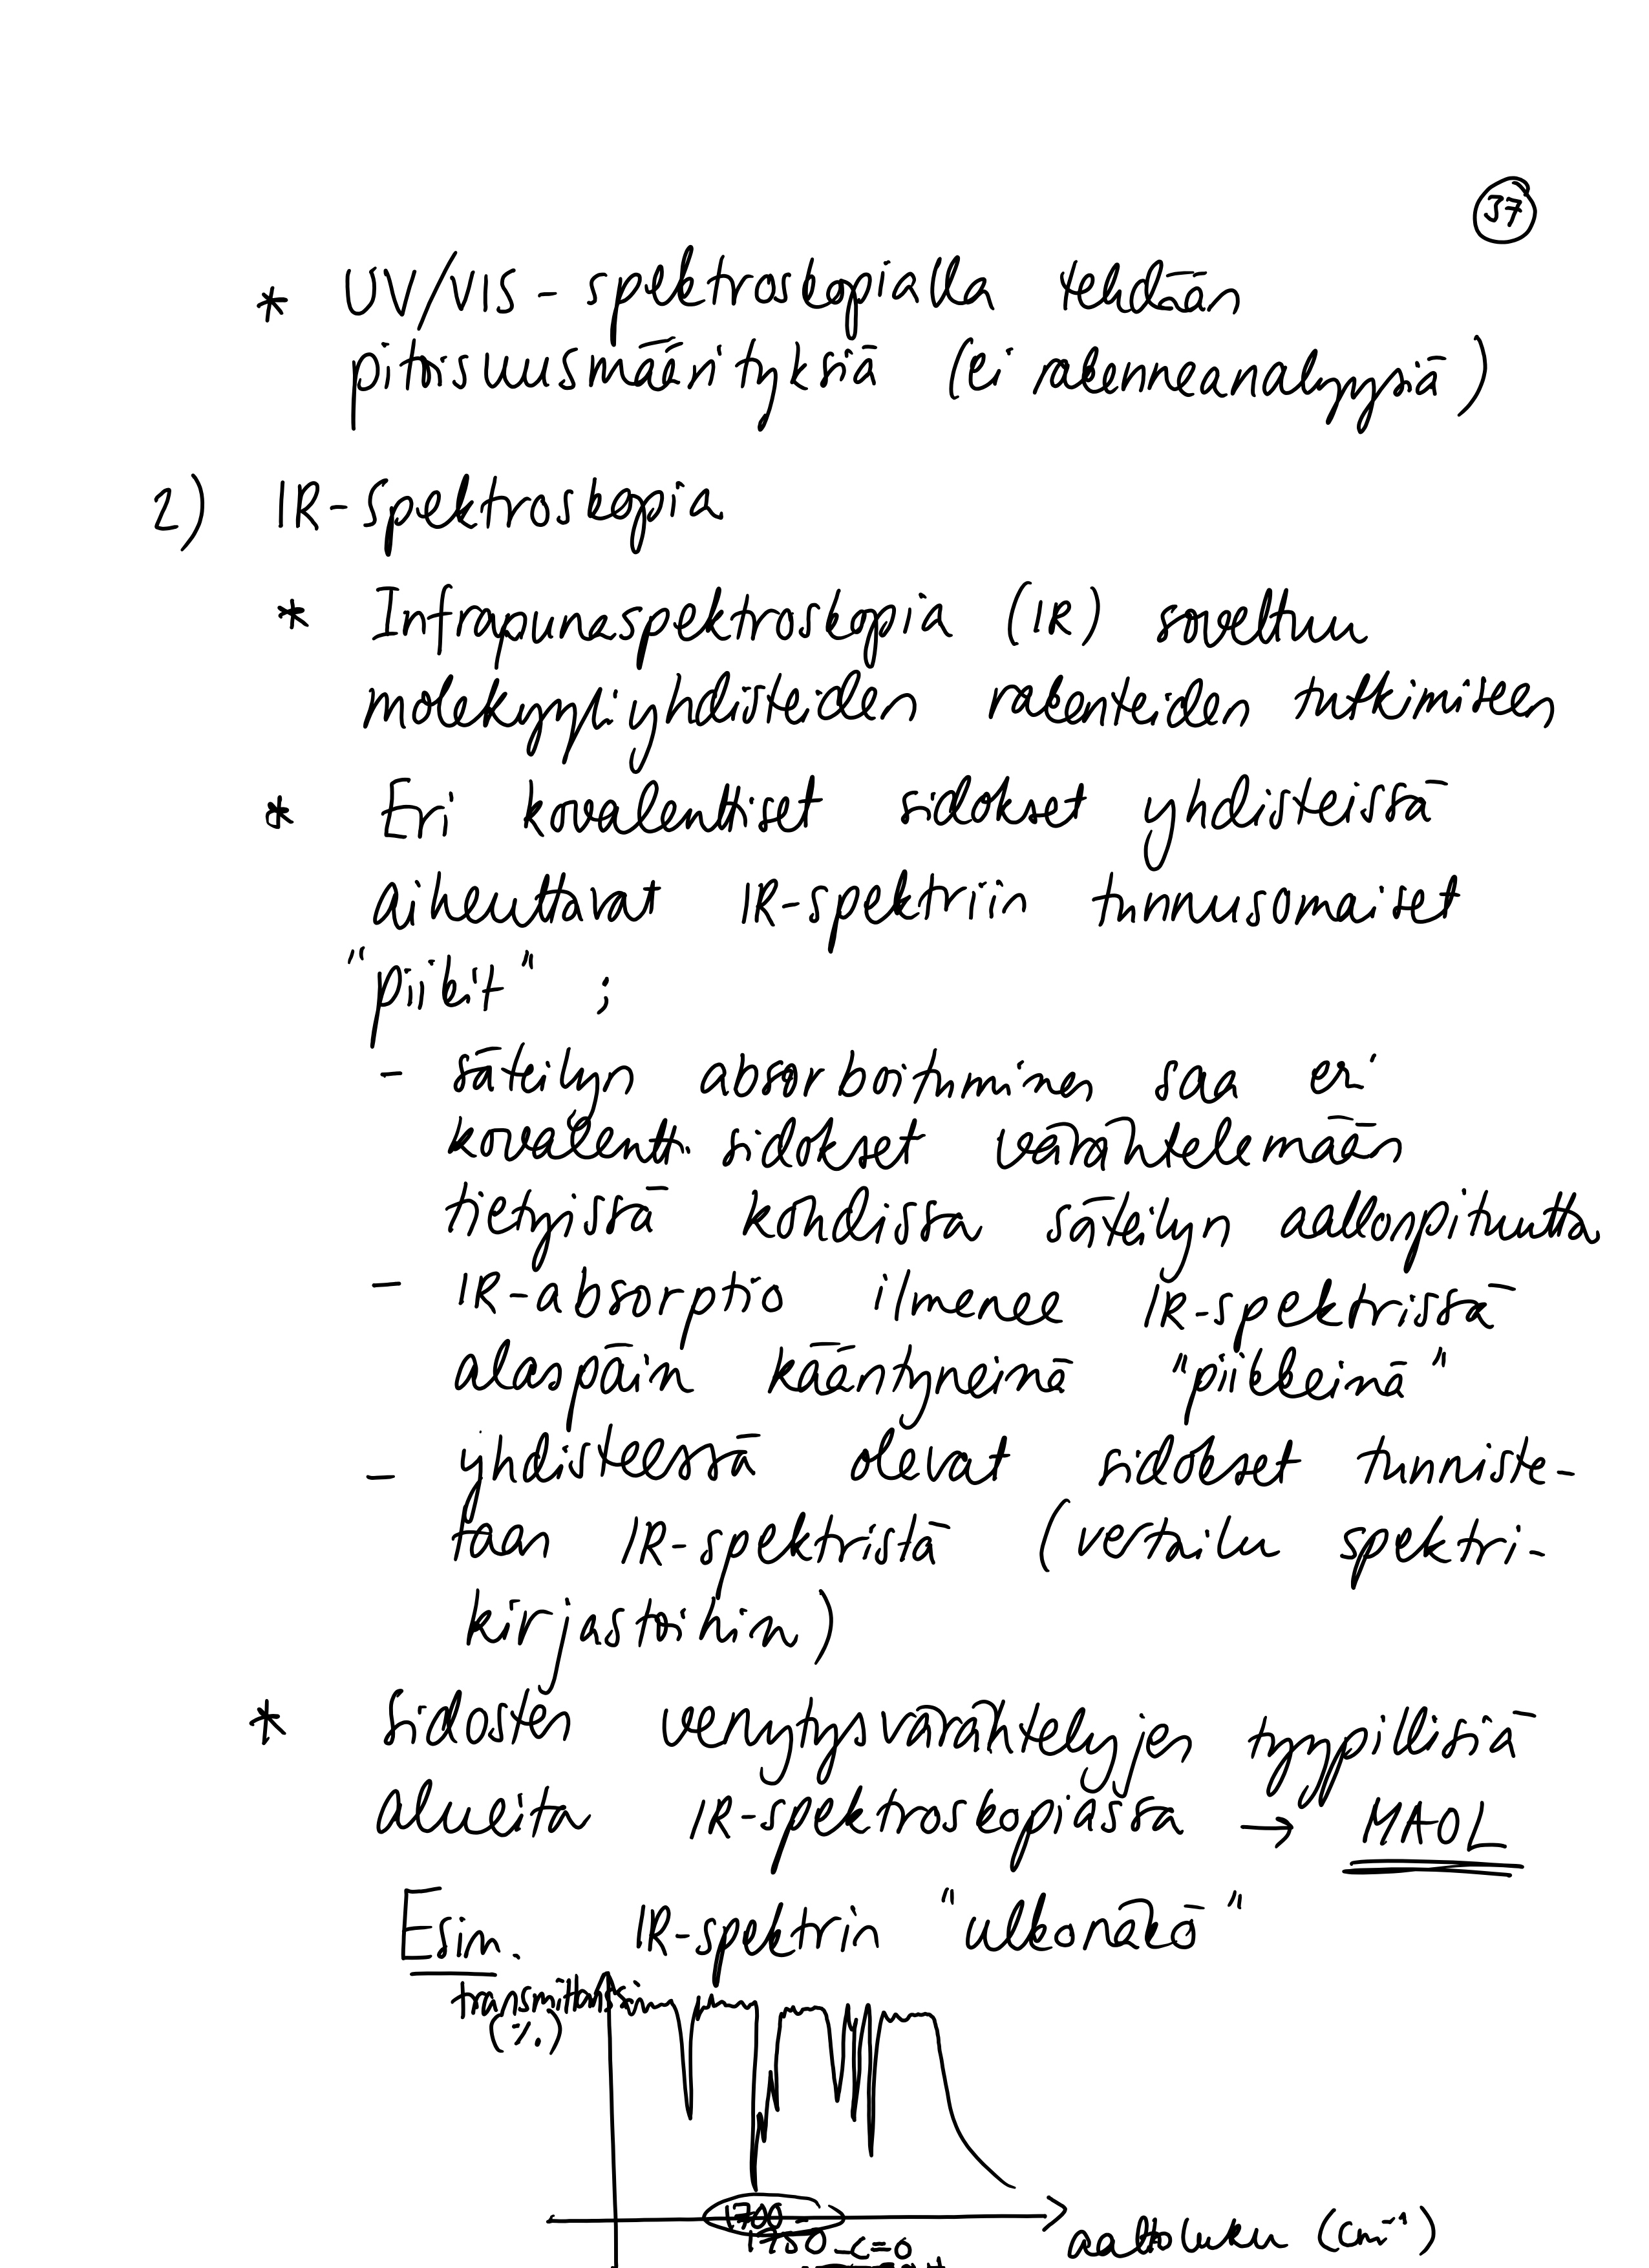 37
* UV/VIS - spektroskopialla tehdään
pitoisuusmäärityksiä (ei rakenneanalyysiä)
2) IR-spektroskopia
* Infrapunaspektroskopia (IR) soveltuu
molekyyliyhdisteiden rakenteiden tutkimiseen
* Eri kovalenttiset sidokset yhdisteissä
aiheuttavat IR-spektriin tunnusomaiset
"piikit" ;
- säteilyn absorboituminen saa eri
kovalentt. sidokset värähtelemään
tietyissä kohdissa säteilyn aallonpituutta
- IR-absorptio ilmenee IR-spektrissä
alaspäin kääntyneinä "piikkeinä"
- yhdisteessä olevat sidokset tunniste-
taan IR-spektristä (vertailu spektri-
kirjastoihin)
* Sidosten venytysvärähtelyjen tyypillisiä
alueita IR-spektroskopiassa → MAOL
Esim. IR-spektrin "ulkonäkö"
transmittanssi
(%)
1700-
1750 -C=O
aaltoluku (cm⁻¹)